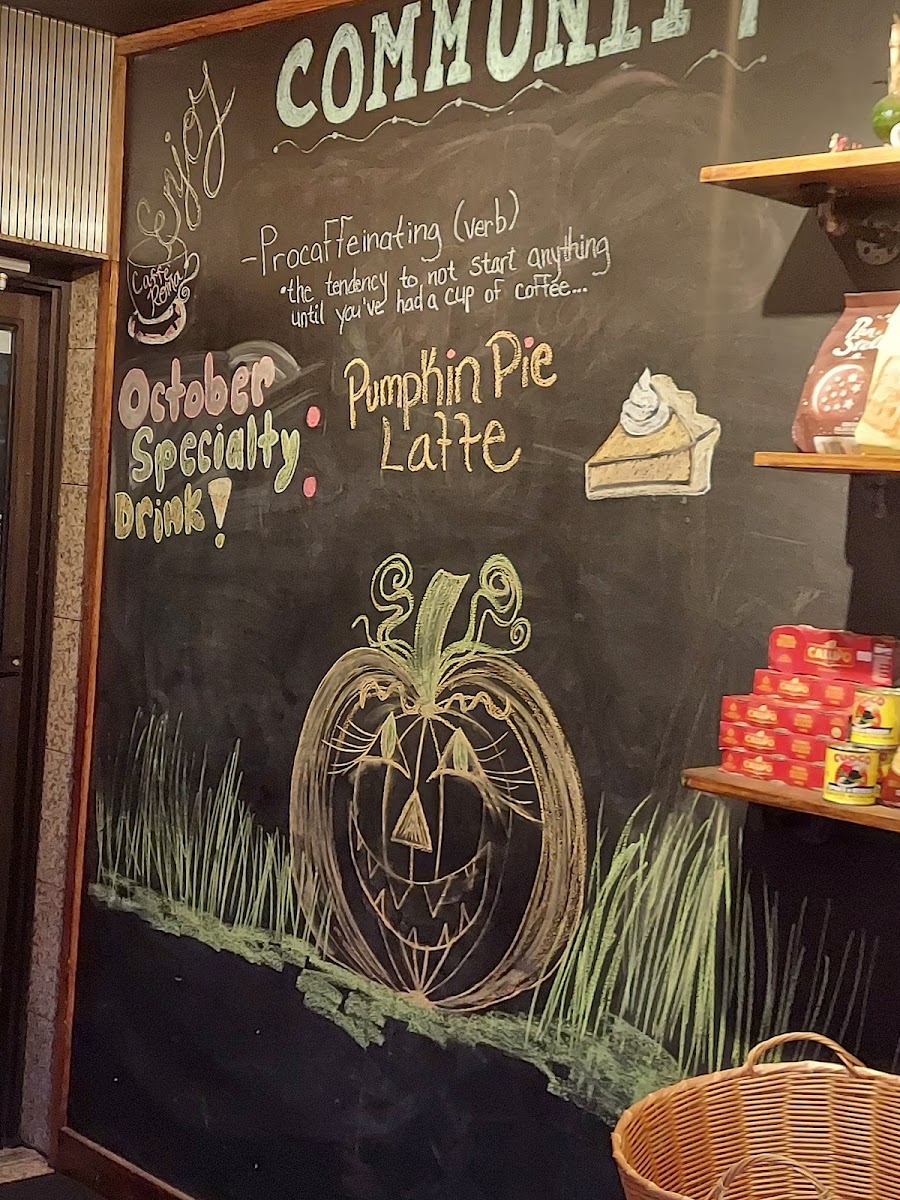 COMMUNITY
Enjoy
Caffe
Roma
-Procaffeinating (verb)
•the tendency to not start anything
until you've had a cup of coffee...
October
Specialty
Drink!
:
Pumpkin Pie
Latte
CALLIPO
CALLIPO
CALLIPO
CALLIPO
CALLIPO
CUOCO